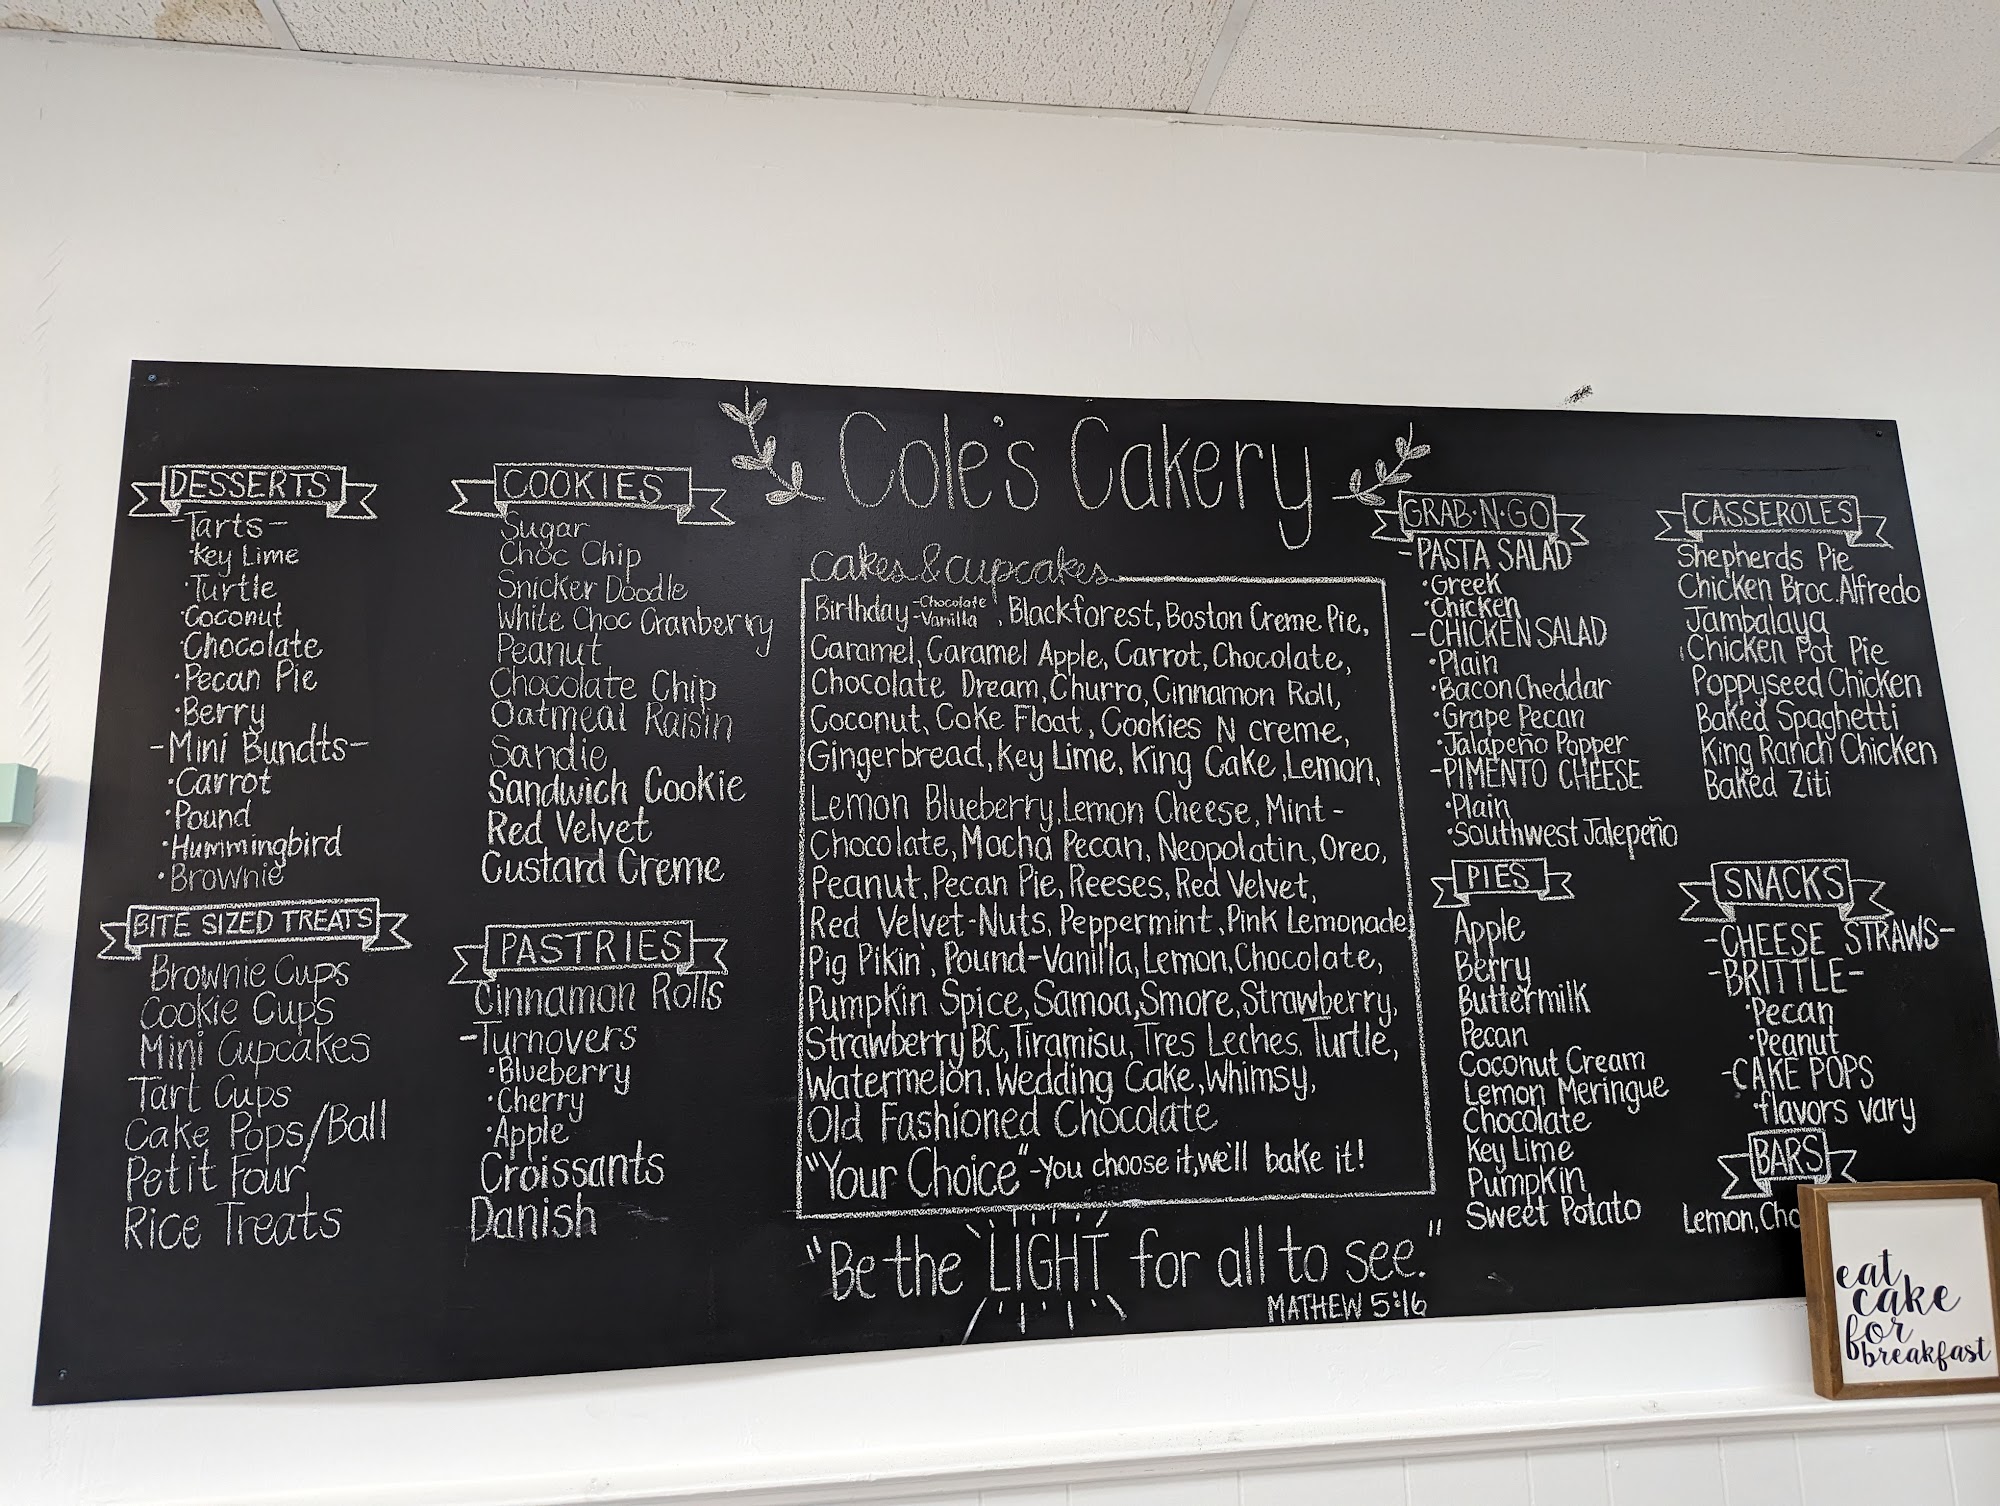 Cole's Cakery
DESSERTS
-Tarts-
·Key Lime
·Turtle
·Coconut
·Chocolate
·Pecan Pie
·Berry
-Mini Bundts-
·Carrot
·Pound
·Hummingbird
·Brownie
BITE SIZED TREATS
Brownie Cups
Cookie Cups
Mini Cupcakes
Tart Cups
Cake Pops/Ball
Petit Four
Rice Treats
COOKIES
Sugar
Choc Chip
Snicker Doodle
White Choc Cranberry
Peanut
Chocolate Chip
Oatmeal Raisin
Sandie
Sandwich Cookie
Red Velvet
Custard Creme
PASTRIES
Cinnamon Rolls
-Turnovers
·Blueberry
·Cherry
·Apple
Croissants
Danish
cakes & cupcakes
Birthday -Chocolate -Vanilla, Blackforest, Boston Creme Pie,
Caramel, Caramel Apple, Carrot, Chocolate,
Chocolate Dream, Churro, Cinnamon Roll,
Coconut, Coke Float, Cookies N creme,
Gingerbread, Key Lime, King Cake, Lemon,
Lemon Blueberry, Lemon Cheese, Mint-
Chocolate, Mocha Pecan, Neopolatin, Oreo,
Peanut, Pecan Pie, Reeses, Red Velvet,
Red Velvet-Nuts, Peppermint, Pink Lemonade,
Pig Pikin', Pound-Vanilla, Lemon, Chocolate,
Pumpkin Spice, Samoa, Smore, Strawberry,
Strawberry BC, Tiramisu, Tres Leches, Turtle,
Watermelon, Wedding Cake, Whimsy,
Old Fashioned Chocolate
"Your Choice" -you choose it, we'll bake it!
"Be the LIGHT for all to see."
MATHEW 5:16
GRAB·N·GO
-PASTA SALAD
·Greek
·Chicken
-CHICKEN SALAD
·Plain
·Bacon Cheddar
·Grape Pecan
·Jalapeño Popper
-PIMENTO CHEESE
·Plain
·Southwest Jalepeño
PIES
Apple
Berry
Buttermilk
Pecan
Coconut Cream
Lemon Meringue
Chocolate
Key Lime
Pumpkin
Sweet Potato
CASSEROLES
Shepherds Pie
Chicken Broc. Alfredo
Jambalaya
Chicken Pot Pie
Poppyseed Chicken
Baked Spaghetti
King Ranch Chicken
Baked Ziti
SNACKS
-CHEESE STRAWS-
-BRITTLE-
·Pecan
·Peanut
-CAKE POPS
·flavors vary
BARS
Lemon, Cho
eat
cake
for
breakfast